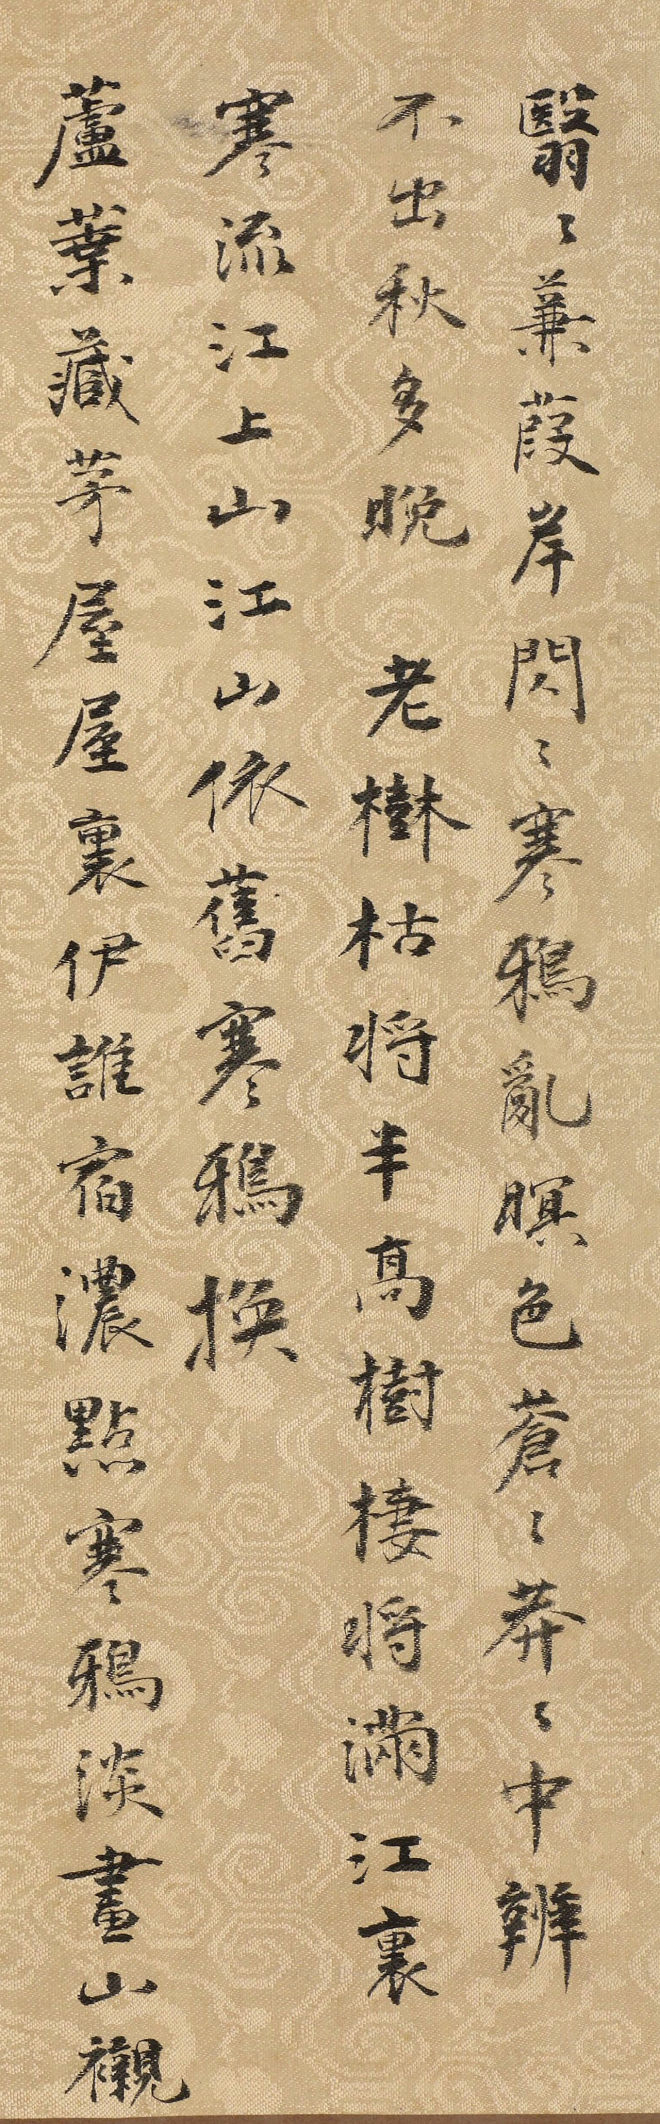 翳〻蒹葭岸閃〻寒鴉亂暝色蒼〻莽〻中辨
不出秋多晚　老樹枯將半高樹棲將滿江裏
寒流江上山江山依舊寒鴉換
蘆葉藏茅屋屋裏伊誰宿濃點寒鴉淡畫山襯